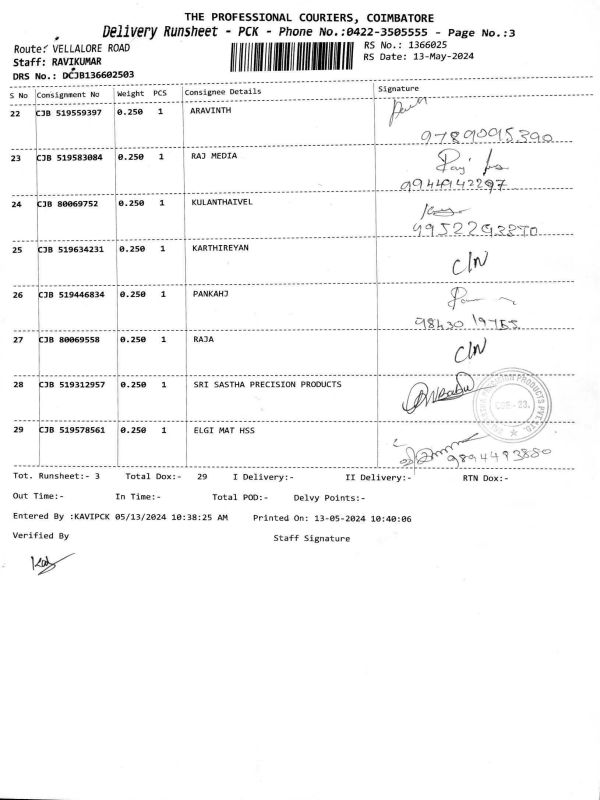 THE PROFESSIONAL COURIERS, COIMBATORE
Delivery Runsheet - PCK - Phone No.:0422-3505555 - Page No.:3
Route: VELLALORE ROAD
RS No.: 1366025
Staff: RAVIKUMAR
RS Date: 13-May-2024
DRS No.: DCJB136602503
S No Consignment No Weight PCS Consignee Details Signature
22 CJB 519559397 0.250 1 ARAVINTH
9789095390
23 CJB 519583084 0.250 1 RAJ MEDIA
9944942297
24 CJB 80069752 0.250 1 KULANTHAIVEL
25 CJB 519634231 0.250 1 KARTHIREYAN C/N
26 CJB 519446834 0.250 1 PANKAHJ
98430 19755
27 CJB 80069558 0.250 1 RAJA C/N
28 CJB 519312957 0.250 1 SRI SASTHA PRECISION PRODUCTS
29 CJB 519578561 0.250 1 ELGI MAT HSS
9894493880
Tot. Runsheet:- 3 Total Dox:- 29 I Delivery:- II Delivery:- RTN Dox:-
Out Time:- In Time:- Total POD:- Delvy Points:-
Entered By :KAVIPCK 05/13/2024 10:38:25 AM Printed On: 13-05-2024 10:40:06
Verified By Staff Signature